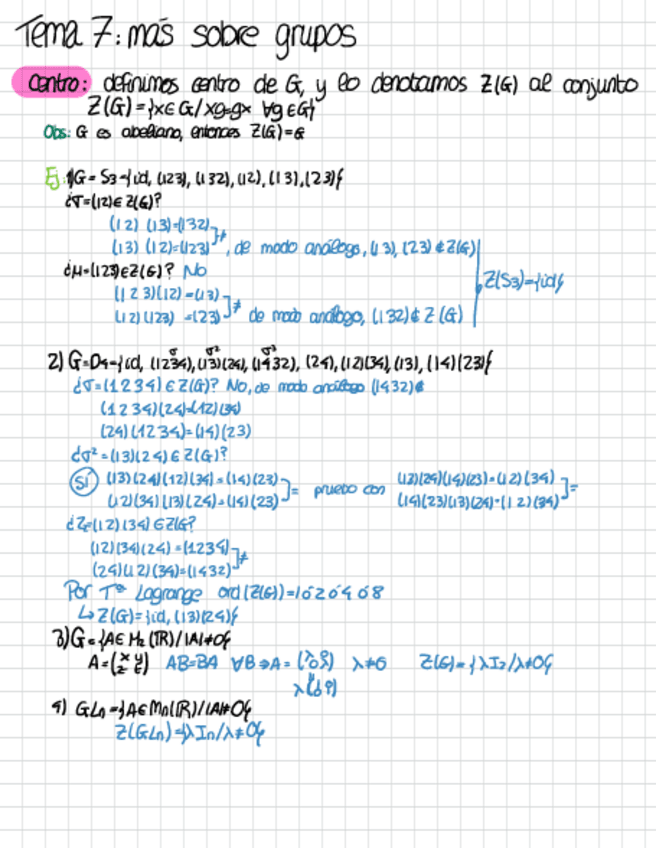 Tema 7: más sobre grupos
Centro: definimos centro de G, y lo denotamos Z(G) al conjunto
Z(G)={x∈G/xg=gx ∀g∈G}
Obs: G es abeliano, entonces Z(G)=G
Ej: 1) G=S3={id, (123), (132), (12), (13), (23)}
¿σ=(12)∈Z(G)?
(12) (13)=(132)
(13) (12)=(123) ≠, de modo análogo, (13), (23)∉Z(G)
¿μ=(123)∈Z(G)? No
Z(S3)={id}
(1 2 3)(12)=(13)
(12)(123) =(23) ≠ de modo análogo, (132)∉Z(G)
2) G=D4={id, (1234), (13)(24), (1432), (24), (12)(34), (13), (14)(23)}
σ σ² σ³
¿σ=(1234)∈Z(G)? No, de modo análogo (1432)∉
(1234)(24)=(12)(34)
(24)(1234)=(14)(23)
¿σ²=(13)(24)∈Z(G)?
Sí (13)(24)(12)(34)=(14)(23)
(12)(34)(13)(24)=(14)(23) = pruebo con (13)(24)(14)(23)=(12)(34)
(14)(23)(13)(24)=(12)(34) =
(12)(34)∈Z(G)?
(12)(34)(24)=(1234)
(24)(12)(34)=(1432) ≠
Por Tª Lagrange ord(Z(G))=1ó2ó4ó8
↳Z(G)={id, (13)(24)}
3) G={A∈M2(ℝ)/|A|≠0}
A=(x y
z t) AB=BA ∀B⇒A=(λ 0
0 λ) λ≠0 Z(G)={λI2/λ≠0}
λ(1 0
0 1)
4) GLn={A∈Mn(ℝ)/|A|≠0}
Z(GLn)={λIn/λ≠0}